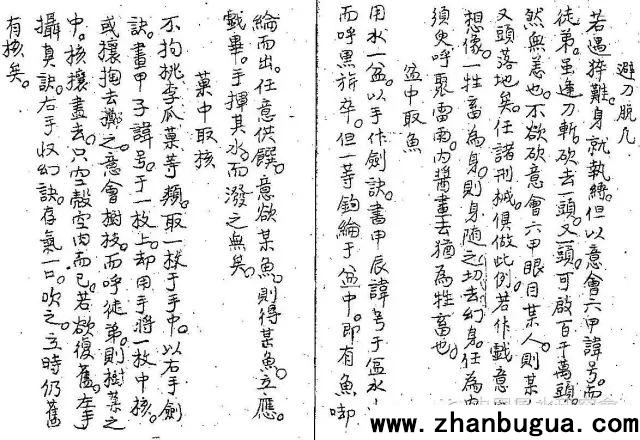 避刀脱凡
若遇猝難。身就執縛。但以意會六甲諱号。而
徒弟。虽逢刀斬。砍去一頭。又一頭。可啟百千萬頭。
然無恙也。不欲砍意會六甲眼目某人。則某
又頭落地矣。任諸刑械俱做此例。若作戲意
想像一牲畜為身。則身随之切去幻身。任為
須臾呼聚雷雨。内醬畫去猶為牲畜也。
盆中取魚
用水一盆。以手作劍訣。書甲辰諱号于盆水
而呼黒旂卒。但一等鈎綸于盆中。即有魚啣
綸而出。任意供饌。意欲某魚。則得某魚。立應。
戲畢。手揮其水。而潑之無矣。
菓中取核
不拘桃李瓜菓等類。取一枚于手中。以右手劍
訣。畫甲子諱号。于一枚上。却用手將一枚中核。
或攘掏去擲之。意會樹枝。而呼徒弟。則樹菓之
中。核攘盡去。只空殼空肉而已。若欲復舊。左手
攝真訣。右手收幻訣。存氣一口。吹之。立時仍舊
有核矣。
www.zhanbugua.com